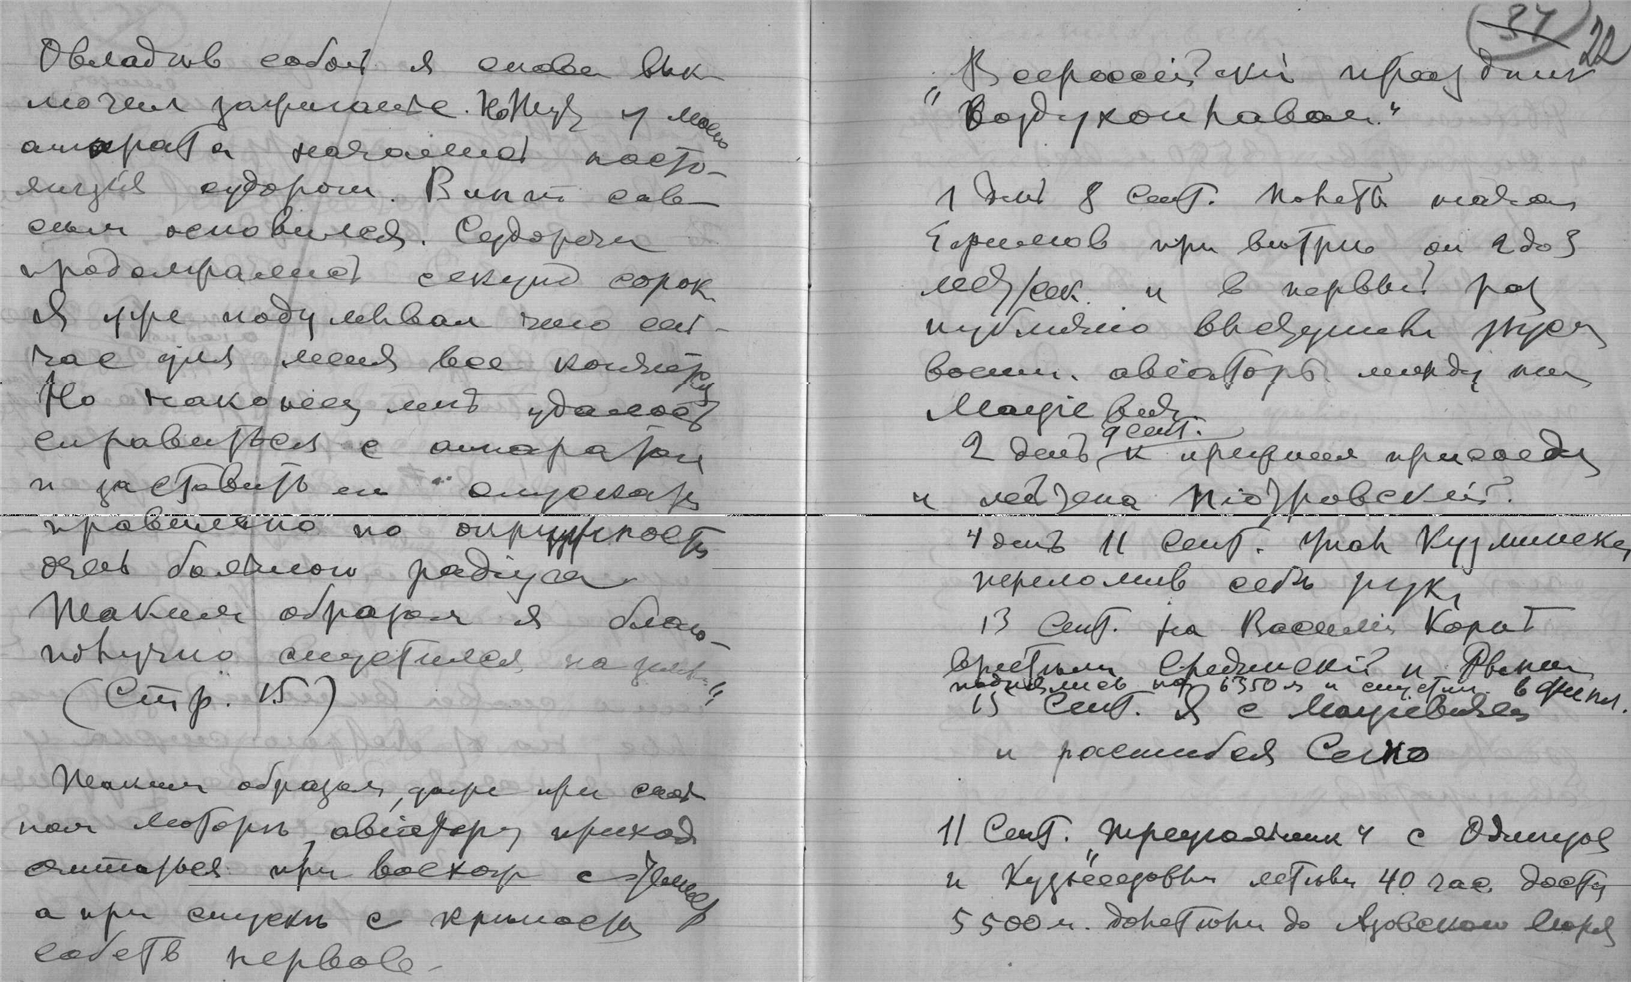 Овладѣв собой я снова вык-
лючил зажигание. Но тут у моего
аппарата начались насто-
ящія судороги. Винт сов-
сѣм остановился. Судороги
продолжались секунд сорок
Я уже подумывал что сей-
час для меня все кончено
Но наконец мнѣ удалось
справиться с аппаратом
и заставить его опускать
правильно по окружности
очень большого радіуса
Таким образом я благо-
получно спустился на землю"
(Стр. 15)
Таким образом, даже при
ном моторѣ, авіатору приход
считаться при восходѣ с
а при спускѣ с крѣпость
первов
37 22
Всероссійскій праздник
"Воздухоплаван."
1 день 8 сент. Полеты начал
Ефимов при вѣтрѣ от 2 до 3
мет/сек. и в первый раз
публично
воен. авіаторы между ни
Мацiевич
9 сент.
2 день к прежним присоеди
и лейтена Піотровскій.
4 день 11 сент. упал Кузминскі
переломив себѣ руку
13 Сент. на
Срединскій и
поднялись на 6350 м и спустил. в Финл.
15 Сент. Я с Мацiевичем
и расшибся Сегно
11 Сент. "Треугольник" с Одинцов
и Кузнецовым летѣли 40 час. дости
5500 м. долетѣли до Азовского Моря